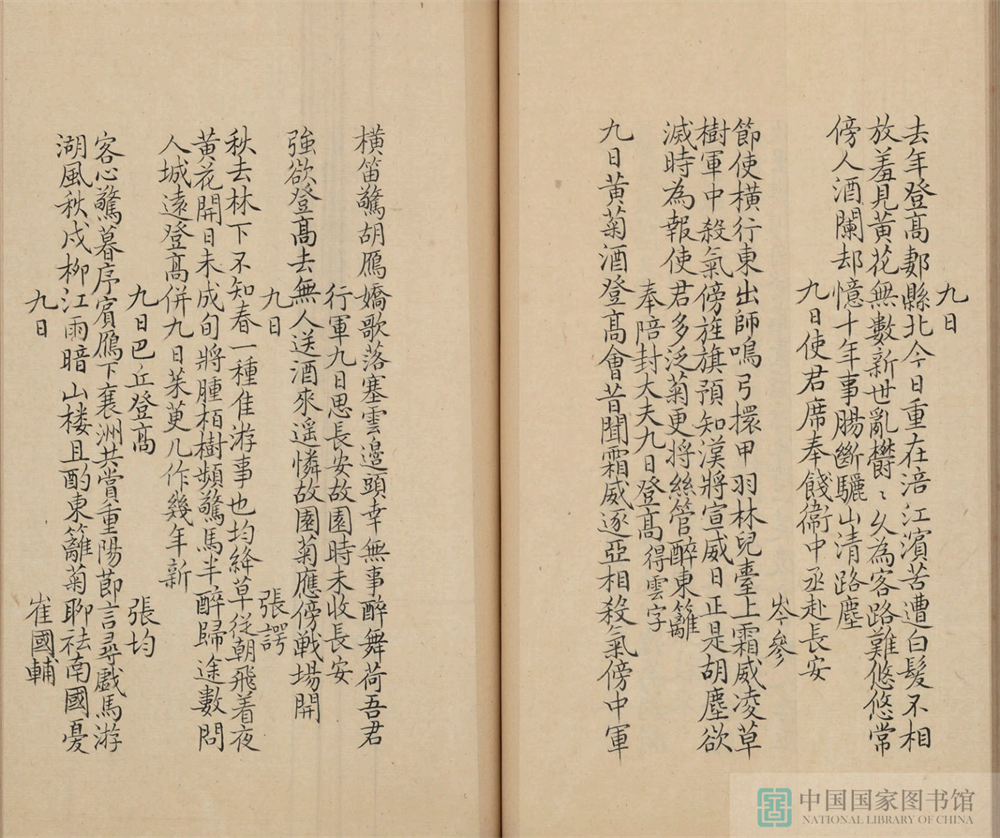 九日
去年登高郪縣北今日重在涪江濱苦遭白髮不相
放羞見黃花無數新世亂欝〻久為客路難悠悠常
傍人酒闌却憶十年事腸斷驪山清路塵
九日使君席奉餞衛中丞赴長安
岑參
節使横行東出師鳴弓擐甲羽林兒臺上霜威凌草
樹軍中殺氣傍旌旗預知漢將宣威日正是胡塵欲
滅時為報使君多泛菊更將絲管醉東籬
奉陪封大夫九日登高得雲字
九日黃菊酒登高會昔聞霜威逐亞相殺氣傍中軍
横笛驚胡鴈嬌歌落塞雲邉頭幸無事醉舞荷吾君
行軍九日思長安故園時未收長安
強欲登高去無人送酒來遥憐故園菊應傍戦場開
九日 張諤
秋去林下不知春一種佳游事也均絳草從朝飛着夜
黃花開日未成旬將腫栢樹頻驚馬半醉歸途數問
人城遠登高併九日茱萸凡作幾年新
九日巴丘登高 張均
客心驚暮序賓鴈下襄洲共賞重陽莭言尋戲馬游
湖風秋戍柳江雨暗山楼且酌東籬菊聊袪南國憂
九日 崔國輔
中国国家图书馆
NATIONAL LIBRARY OF CHINA